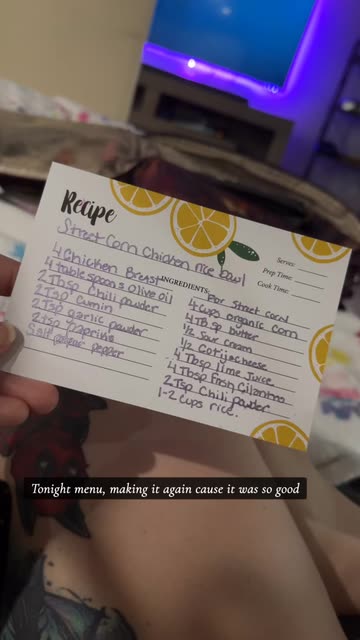 Recipe
Street Corn Chicken rice bowl
Serves:
Prep Time:
Cook Time:
INGREDIENTS:
4 Chicken Breast
4 tablespoons Olive oil
2 Tbsp Chili powder
2 Tsp Cumin
2 Tsp garlic powder
2 tsp Paprika
Salt pepper
For Street Corn
4 cups organic corn
4 Tbsp butter
1/2 Sour cream
1/2 Cotija cheese
4 Tbsp lime Juice
4 Tbsp Fresh Cilantro
2 Tsp Chili powder
1-2 cups rice.
Tonight menu, making it again cause it was so good